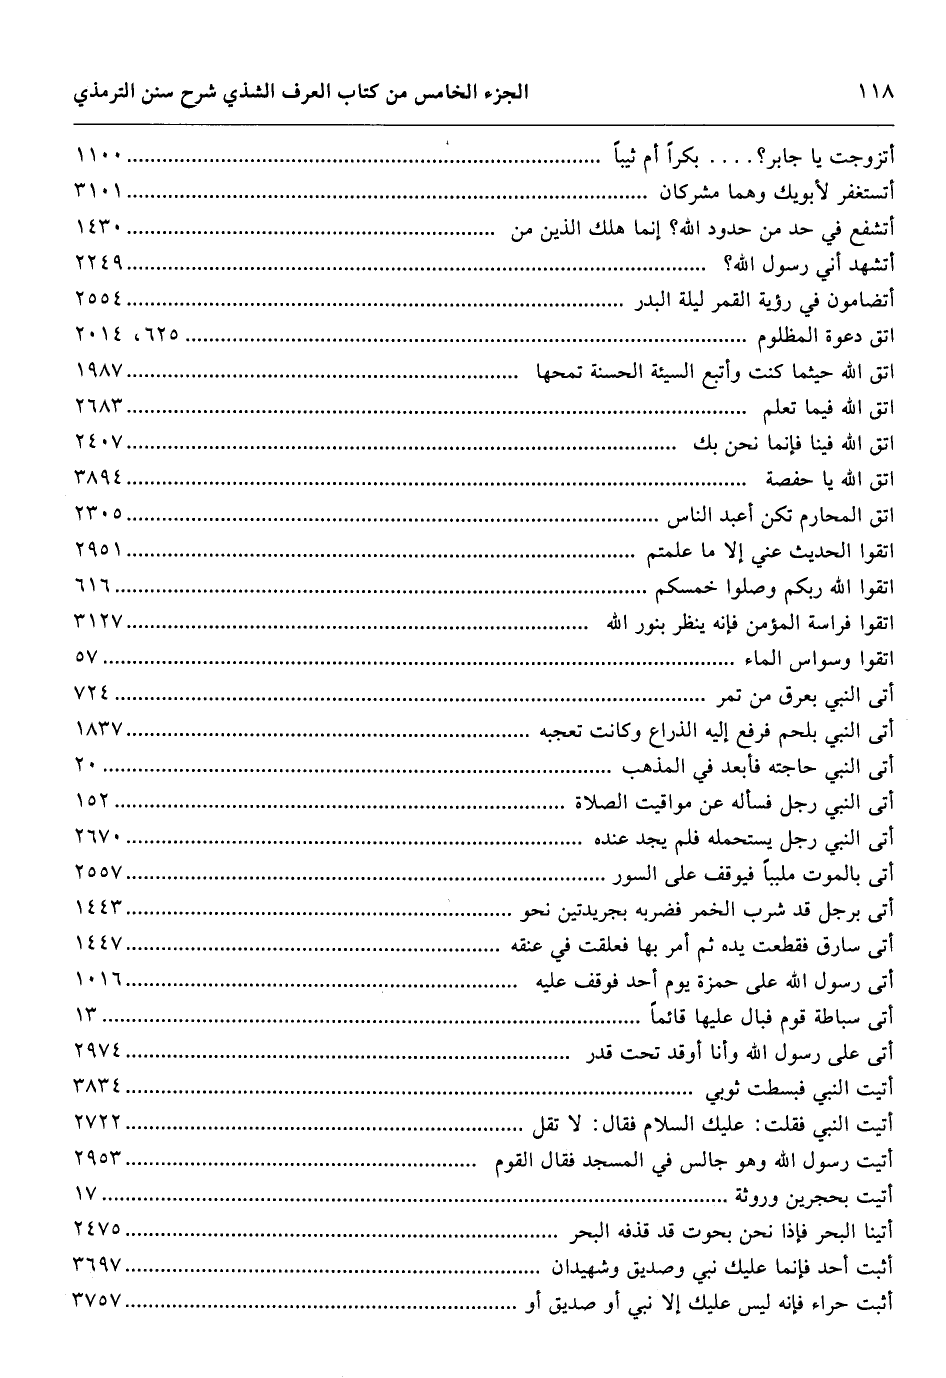 ١١٨ الجزء الخامس من كتاب العرف الشذي شرح سنن الترمذي
أتزوجت يا جابر؟.... بكراً أم ثيباً ........ ١١٠٠
أتستغفر لأبويك وهما مشركان ........ ٣١٠١
أتشفع في حد من حدود الله؟ إنما هلك الذين من ........ ١٤٣٠
أتشهد أني رسول الله؟ ........ ٢٢٤٩
أتضامون في رؤية القمر ليلة البدر ........ ٢٥٥٤
اتق دعوة المظلوم ........ ٦٢٥، ٢٠١٤
اتق الله حيثما كنت وأتبع السيئة الحسنة تمحها ........ ١٩٨٧
اتق الله فيما تعلم ........ ٢٦٨٣
اتق الله فينا فإنما نحن بك ........ ٢٤٠٧
اتق الله يا حفصة ........ ٣٨٩٤
اتق المحارم تكن أعبد الناس ........ ٢٣٠٥
اتقوا الحديث عني إلا ما علمتم ........ ٢٩٥١
اتقوا الله ربكم وصلوا خمسكم ........ ٦١٦
اتقوا فراسة المؤمن فإنه ينظر بنور الله ........ ٣١٢٧
اتقوا وسواس الماء ........ ٥٧
أتى النبي بعرق من تمر ........ ٧٢٤
أتى النبي بلحم فرفع إليه الذراع وكانت تعجبه ........ ١٨٣٧
أتى النبي حاجته فأبعد في المذهب ........ ٢٠
أتى النبي رجل فسأله عن مواقيت الصلاة ........ ١٥٢
أتى النبي رجل يستحمله فلم يجد عنده ........ ٢٦٧٠
أتى بالموت ملبباً فيوقف على السور ........ ٢٥٥٧
أتى برجل قد شرب الخمر فضربه بجريدتين نحو ........ ١٤٤٣
أتى سارق فقطعت يده ثم أمر بها فعلقت في عنقه ........ ١٤٤٧
أتى رسول الله على حمزة يوم أحد فوقف عليه ........ ١٠١٦
أتى سباطة قوم فبال عليها قائماً ........ ١٣
أتى على رسول الله وأنا أوقد تحت قدر ........ ٢٩٧٤
أتيت النبي فبسطت ثوبي ........ ٣٨٣٤
أتيت النبي فقلت: عليك السلام فقال: لا تقل ........ ٢٧٢٢
أتيت رسول الله وهو جالس في المسجد فقال القوم ........ ٢٩٥٣
أتيت بحجرين وروثة ........ ١٧
أتينا البحر فإذا نحن بحوت قد قذفه البحر ........ ٢٤٧٥
أثبت أحد فإنما عليك نبي وصديق وشهيدان ........ ٣٦٩٧
أثبت حراء فإنه ليس عليك إلا نبي أو صديق أو ........ ٣٧٥٧